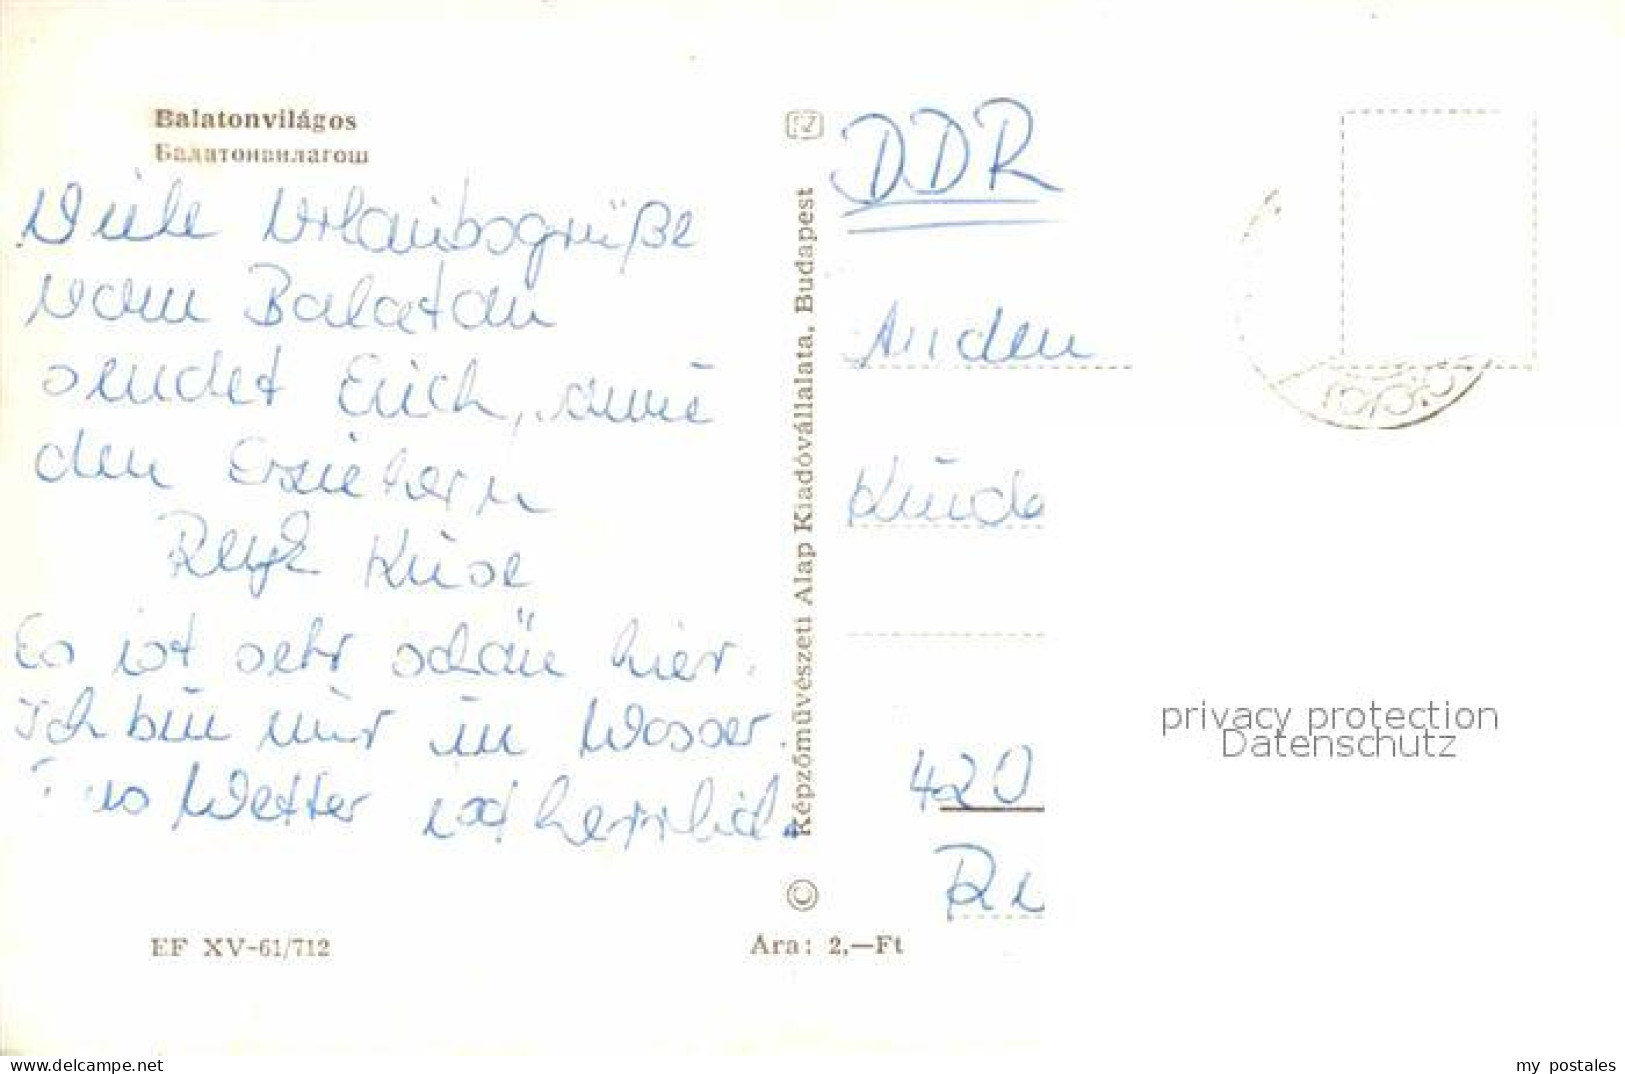 Balatonvilágos
Балатонвилагош
Viele Urlaubsgrüße
vom Balaton
sendet Erich, sowie
den Erziehern
Kuse
Es ist sehr schön hier.
Ich bin nur im Wasser.
Wetter ist herrlich.
EF XV-61/712
Képzőművészeti Alap Kiadóvállalata, Budapest
©
Ára: 2,—Ft
DDR
An den
Kinde
420
privacy protection
Datenschutz
delcampe.net
my_postales